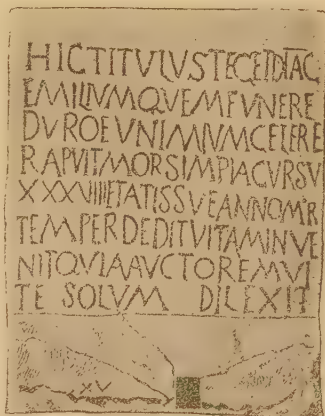 HICTITVLVSTECETDIAC
EMILIVMQVEMFVNERE
DVROEVNIMIVMCELERE
RAPVITMORSIMPIACVRSV
XXXVIIIIETATISSVEANNOMR
TEMPERDEDITVITAMINVE
NITQVIAAVCTOREMVI
TE SOLVM DILEXIT
XV